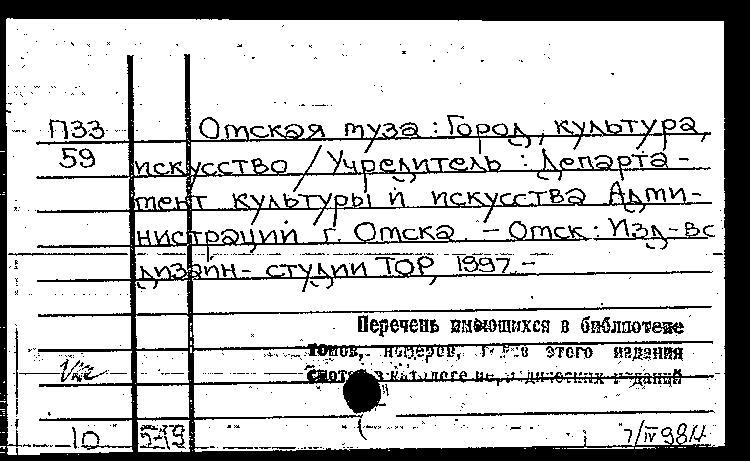 П33 Омская муза : Город, культура,
59 искусство / Учредитель : Департа-
мент культуры и искусства Адми-
нистрации г. Омска. – Омск : Изд-во
дизайн-студии ТОР, 1997 –
Перечень имеющихся в библиотеке
томов, номеров, этого издания
в каталоге периодических изданий
10 549 7/IV 98